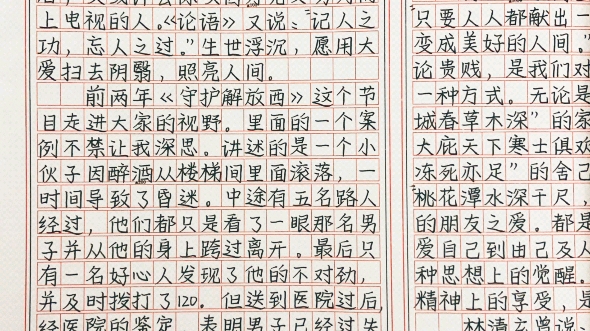 上电视的人。《论语》又说:“记人之
功,忘人之过。”生世浮沉,愿用大
爱扫去阴翳,照亮人间。
前两年《守护解放西》这个节
目走进大家的视野。里面的一个案
例不禁让我深思。讲述的是一个小
伙子因醉酒从楼梯间里面滚落,一
时间导致了昏迷。中途有五名路人
经过,他们都只是看了一眼那名男
子并从他的身上跨过离开。最后只
有一名好心人发现了他的不对劲,
并及时拨打了120。但送到医院过后,
经医院的鉴定,表明男子已经过失
只要人人都献出一
变成美好的人间。”
论贵贱,是我们对
一种方式。无论是
城春草木深”的家
大庇天下寒士俱欢
冻死亦足”的舍己
桃花潭水深千尺,
的朋友之爱。都是
爱自己到由己及人
种思想上的觉醒。
精神上的享受,是
林清玄曾说: